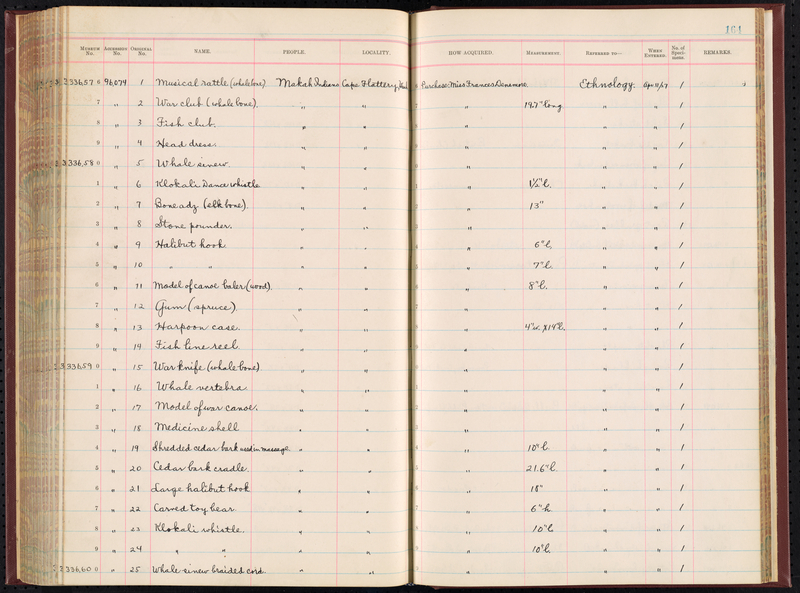 164
Museum No. Accession No. Original No. NAME. PEOPLE. LOCALITY. HOW ACQUIRED. Measurement. Referred to— When Entered. No. of Speci-mens REMARKS.
333657 0 96074 1 Musical rattle (whale bone) Makah Indians Cape Flattery, Purchase: Miss Frances Densmore. Ethnology. 1
7 " 2 War club (whale bone). " " " 19.7" long " " 1
8 " 3 Fish club. " " " " " 1
9 " 4 Head dress. " " " " " 1
333658 0 " 5 Whale sinew. " " " " " 1
1 " 6 Klokali Dance whistle " " " 1½" l. " " 1
2 " 7 Bone adz (elk bone). " " " 13" " " 1
3 " 8 Stone pounder. " " " " " 1
4 " 9 Halibut hook " " " 6" l. " " 1
5 " 10 " " " " " 7" l. " " 1
6 " 11 Model of canoe baler (wood). " " " 8" l. " " 1
7 " 12 Gum (spruce) " " " " " 1
8 " 13 Harpoon case. " " " 4" w. x 14" l. " " 1
9 " 14 Fish line reel. " " " " " 1
333659 0 " 15 War knife (whale bone) " " " " " 1
1 " 16 Whale vertebra " " " " " 1
2 " 17 Model of war canoe. " " " " " 1
3 " 18 Medicine shell " " " " " 1
4 " 19 Shredded cedar bark used in massage " " " 10" l. " " 1
5 " 20 Cedar bark cradle. " " " 21.6" l. " " 1
6 " 21 Large halibut hook " " " 18" " " 1
7 " 22 Carved toy bear. " " " 6" h. " " 1
8 " 23 Klokali whistle. " " " 10" l. " " 1
9 " 24 " " " " " 10" l. " " 1
333660 0 " 25 Whale sinew braided cord. " " " " " 1